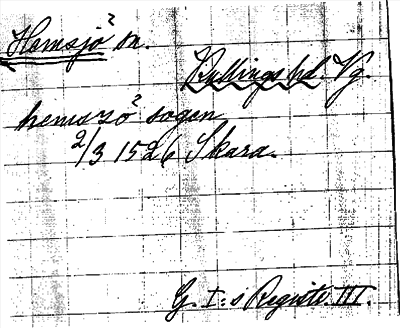 Hemsjö sn.
Kullings hd. Vg.
hemszö sogen
2/3 1526 Skara.
G. I:s Registr. III.